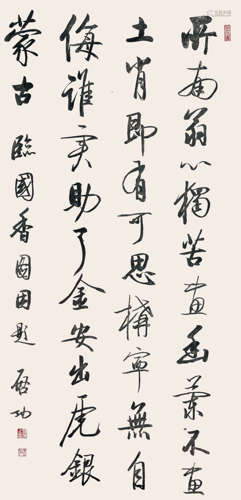 所南翁心獨苦畫幽蘭不畫
土肖即有可思構寧無自
侮誰実助了金安出虎銀
蒙古 臨國香圖因題 啟功